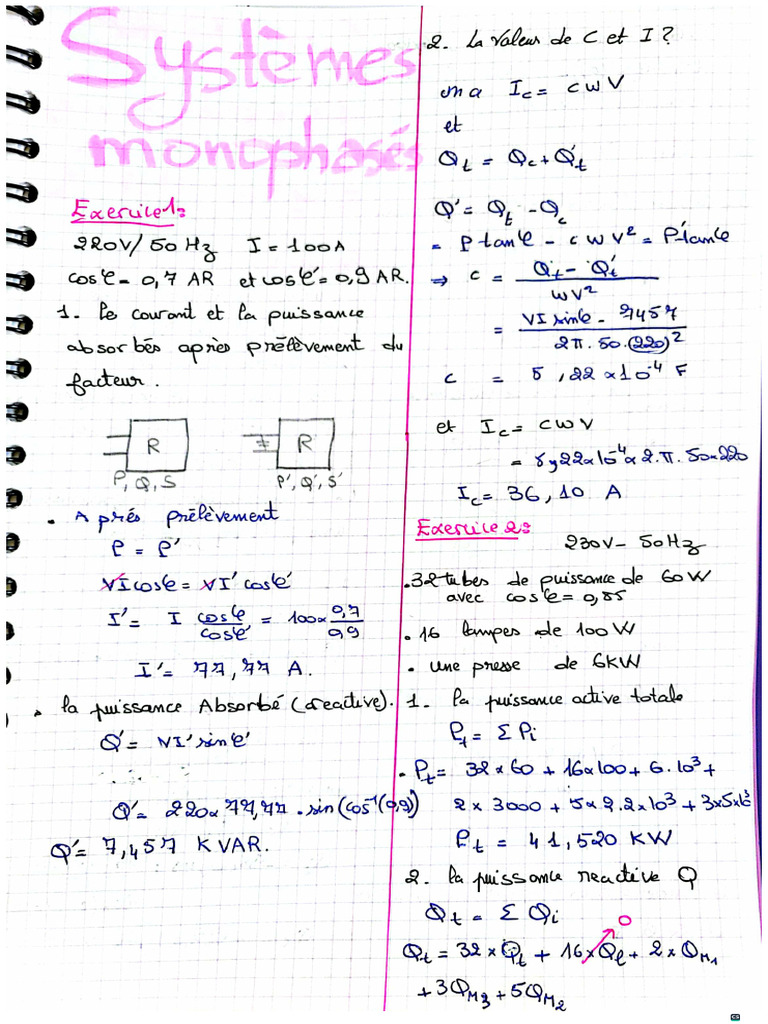 Systèmes
monophasés
Exercice 1:
220V/50Hz I = 100A
cosφ = 0,7 AR et cosφ' = 0,9 AR.
1. le courant et la puissance
absorbés après prélèvement du
facteur.
R
P, Q, S
R
P', Q', S'
• Aprés prélèvement
P = P'
VI cosφ = VI' cosφ'
I' = I cosφ/cosφ' = 100 × 0,7/0,9
I' = 77,77 A.
• la puissance Absorbé (reactive).
Q' = VI' sinφ'
Q' = 220 × 77,77 · sin(cos⁻¹(0,9))
Q' = 7,457 KVAR.
2. La valeur de C et I ?
on a Ic = CωV
et
Qt = Qc + Q't
Q' = Qt - Qc
= P tanφ - CωV² = P' tanφ
⇒ C = Qt - Q't / ωV²
= VI sinφ - 7457 / 2π · 50 · (220)²
C = 5,22 × 10⁻⁴ F
et Ic = CωV
= 5,22 × 10⁻⁴ × 2·π·50×220
Ic = 36,10 A
Exercice 2:
230V - 50Hz
• 32 tubes de puissance de 60W
avec cosφ = 0,85
• 16 lampes de 100W
• une presse de 6KW
1. la puissance active totale
Pt = Σ Pi
• Pt = 32 × 60 + 16 × 100 + 6·10³ +
2 × 3000 + 5 × 2.2 × 10³ + 3×5×10³
Pt = 41,520 KW
2. la puissance reactive Q
Qt = Σ Qi
0
Qt = 32 × Qt + 16 × Ql + 2 × QM1
+ 3QM3 + 5QM2